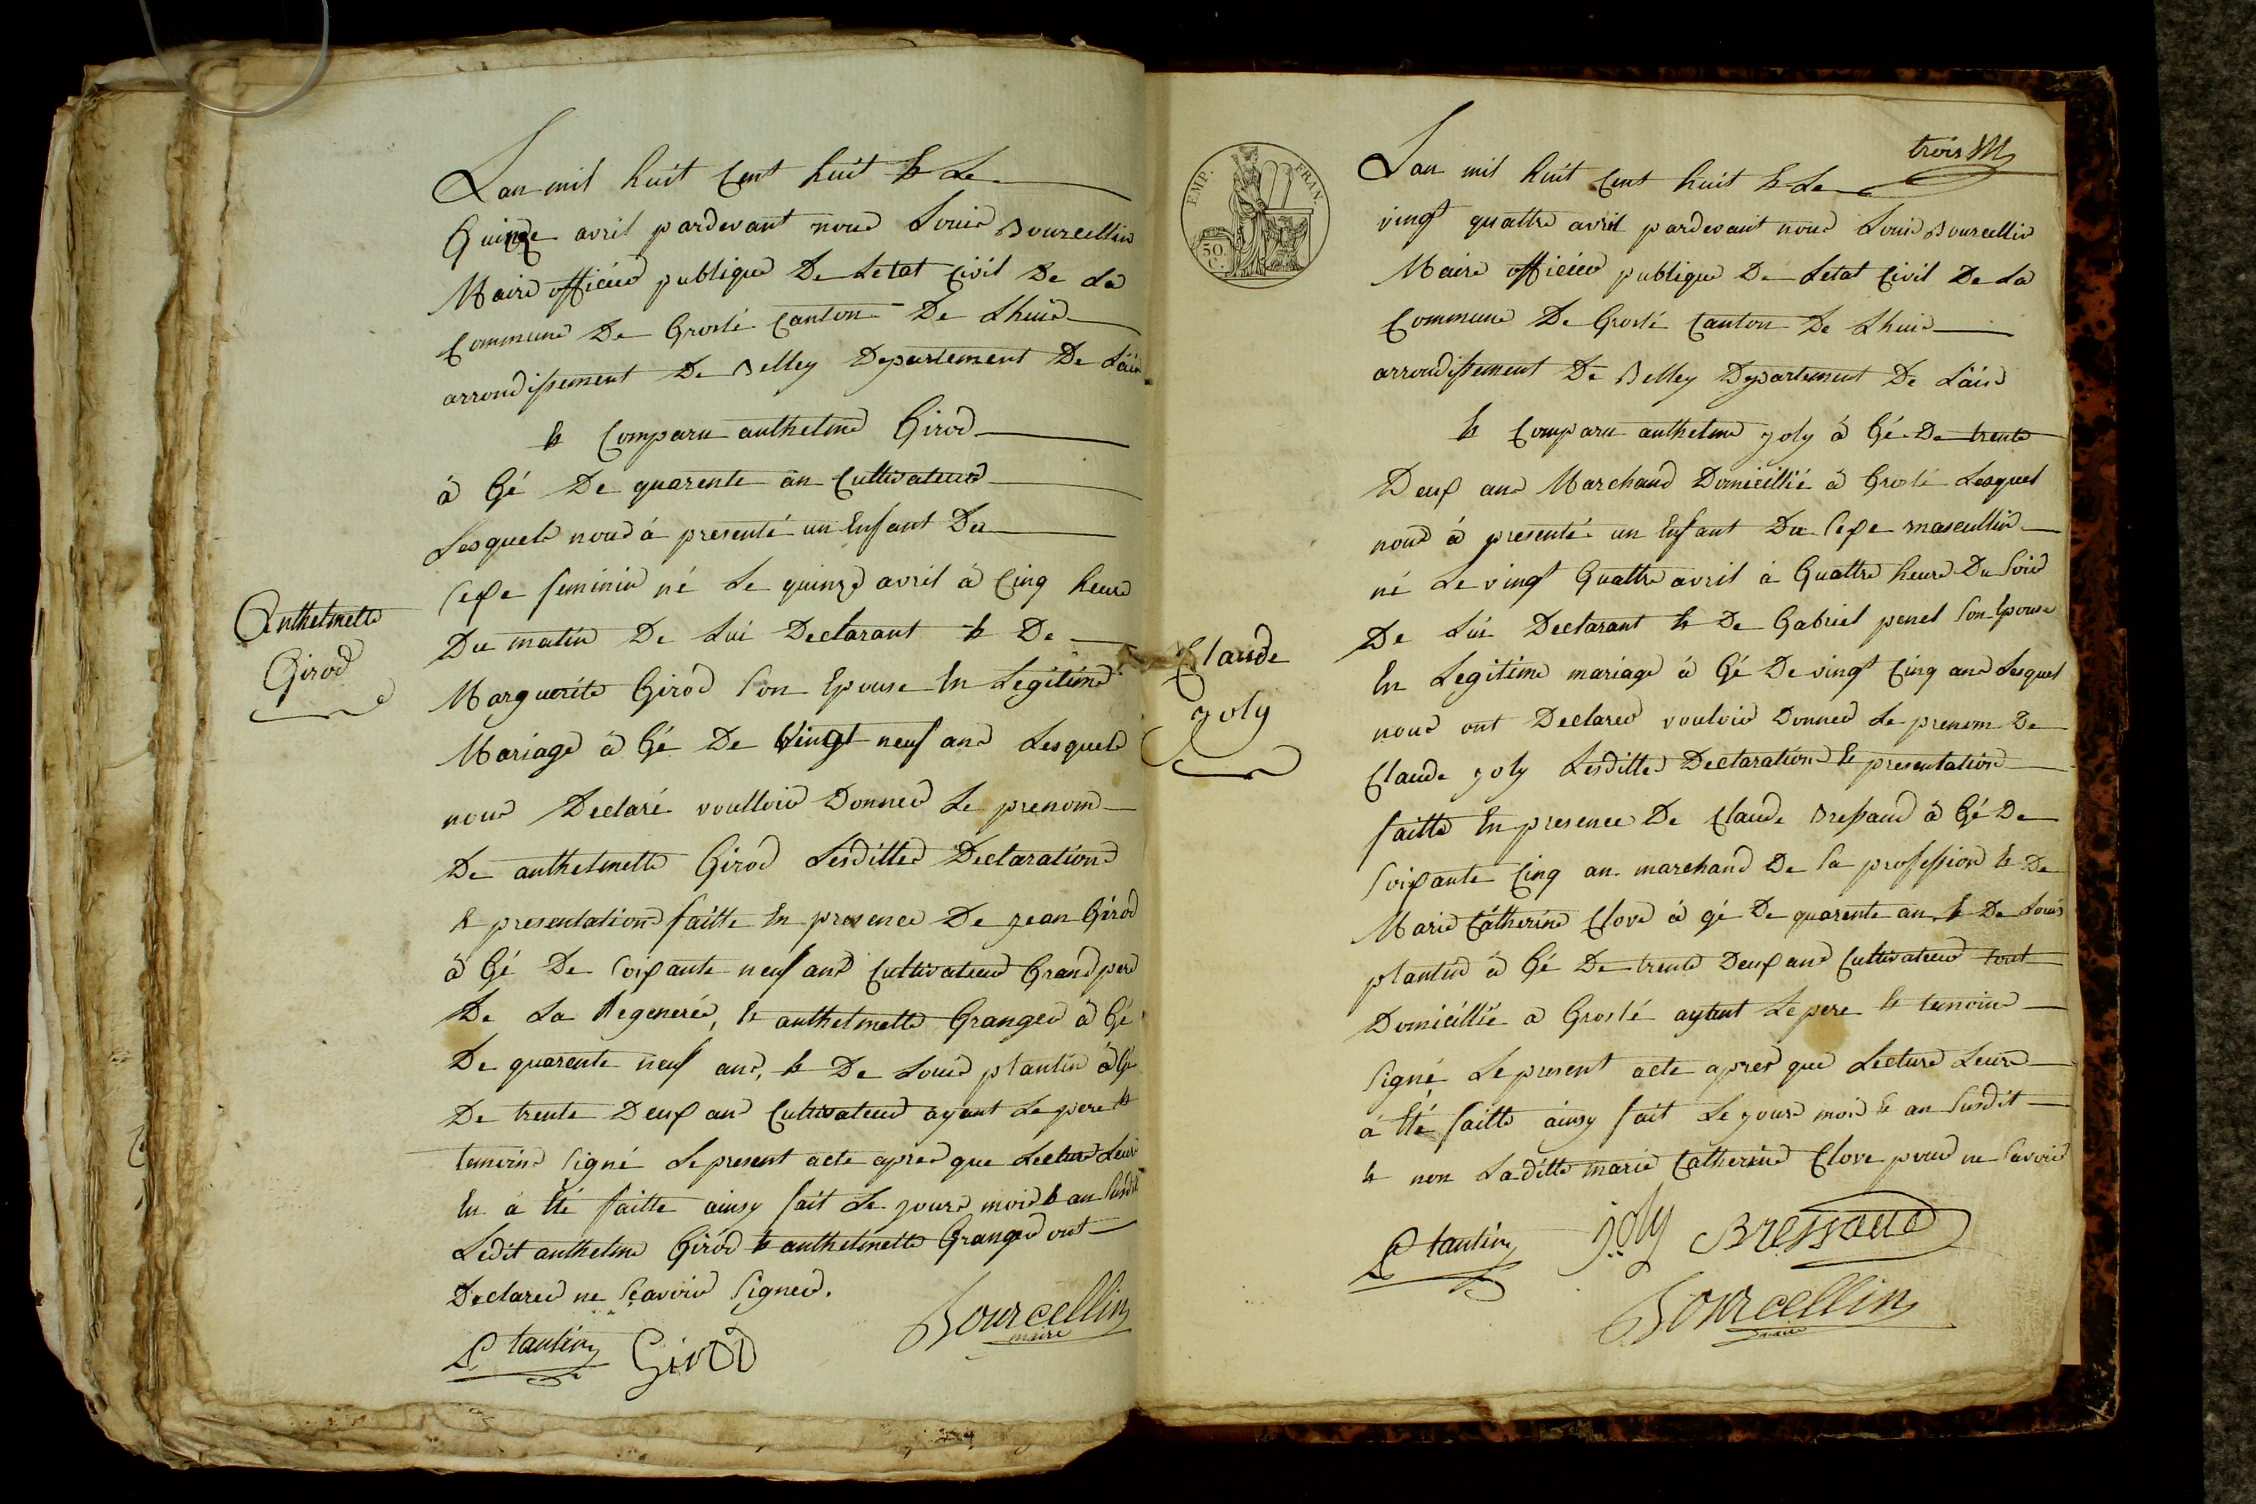 Lan mil huit Cent huit & Le
Quinze avril pardevant nous Louis Bourcellin
Maire officier publique De Letat Civil De La
Commune De Groslé Canton De Lhuis
arrondissement De Belley Departement De Lain
& Comparu anthelme Girod
à Gé De quarente an Cultivateur
Lesquels nous à presenté un Enfant Du
Sexe feminin né Le quinze avril à Cinq heure
Du matin De Lui Declarant & De
Marguerite Girod Son Epouse En Legitime
Mariage à Gé De Vingt neuf ans Lesquels
nous Declaré voulloir Donner Le prenom
De anthelmette Girod Lesdittes Declarations
& presentation faitte En presence De jean Girod
à Gé De Soixante neuf ans Cultivateur Grand pere
De La Regenerée, & anthelmette Granger à Gé
De quarente neuf ans, & De Louis plantin à Gé
De trente Deux ans Cultivateur ayant Le pere &
temoins Signé Le present acte apres que Lecture Leur
En à Eté faitte ainsy fait Le jours mois & an Susdit
Ledit anthelme Girod & anthelmette Granger ont
Declarer ne Sçavoir Signer.
Plantin Girod Bourcellin
maire
Anthelmette
Girod
trois
EMP. FRAN.
50
C.
Lan mil huit Cent huit & Le
vingt quattre avril pardevant nous Louis Bourcellin
Maire officier publique De Letat Civil De La
Commune De Groslé Canton De Lhuis
arrondissement De Belley Departement De Lain
& Comparu anthelme joly à Gé De trente
Deux ans Marchand Domicillié à Groslé Lesquel
nous à presenté un Enfant Du Sexe mascullin
né Le vingt Quattre avril à Quattre heure Du Soir
De Lui Declarant & De Gabriel penel Son Epouse
En Legitime mariage à Gé De vingt Cinq ans Lesquel
nous ont Declarer vouloir Donner Le prenom De
Claude joly Lesdittes Declaration & presentation
faitte En presence De Claude Bressaud à Gé De
Soixante Cinq an marchand De Sa profession & De
Marie Catherine Clove à gé De quarente an, & De Louis
plantin à Gé De trente Deux ans Cultivateur tout
Domicillié a Groslé aytent Le pere & temoins
Signé Le present acte apres que Lecture Leurs
à Eté faitte ainsy fait Le jours mois & an Susdit
& non Laditte marie Catherine Clove pour ne Savoir
Plantin joly Bressaud
Bourcellin
maire
Claude
joly